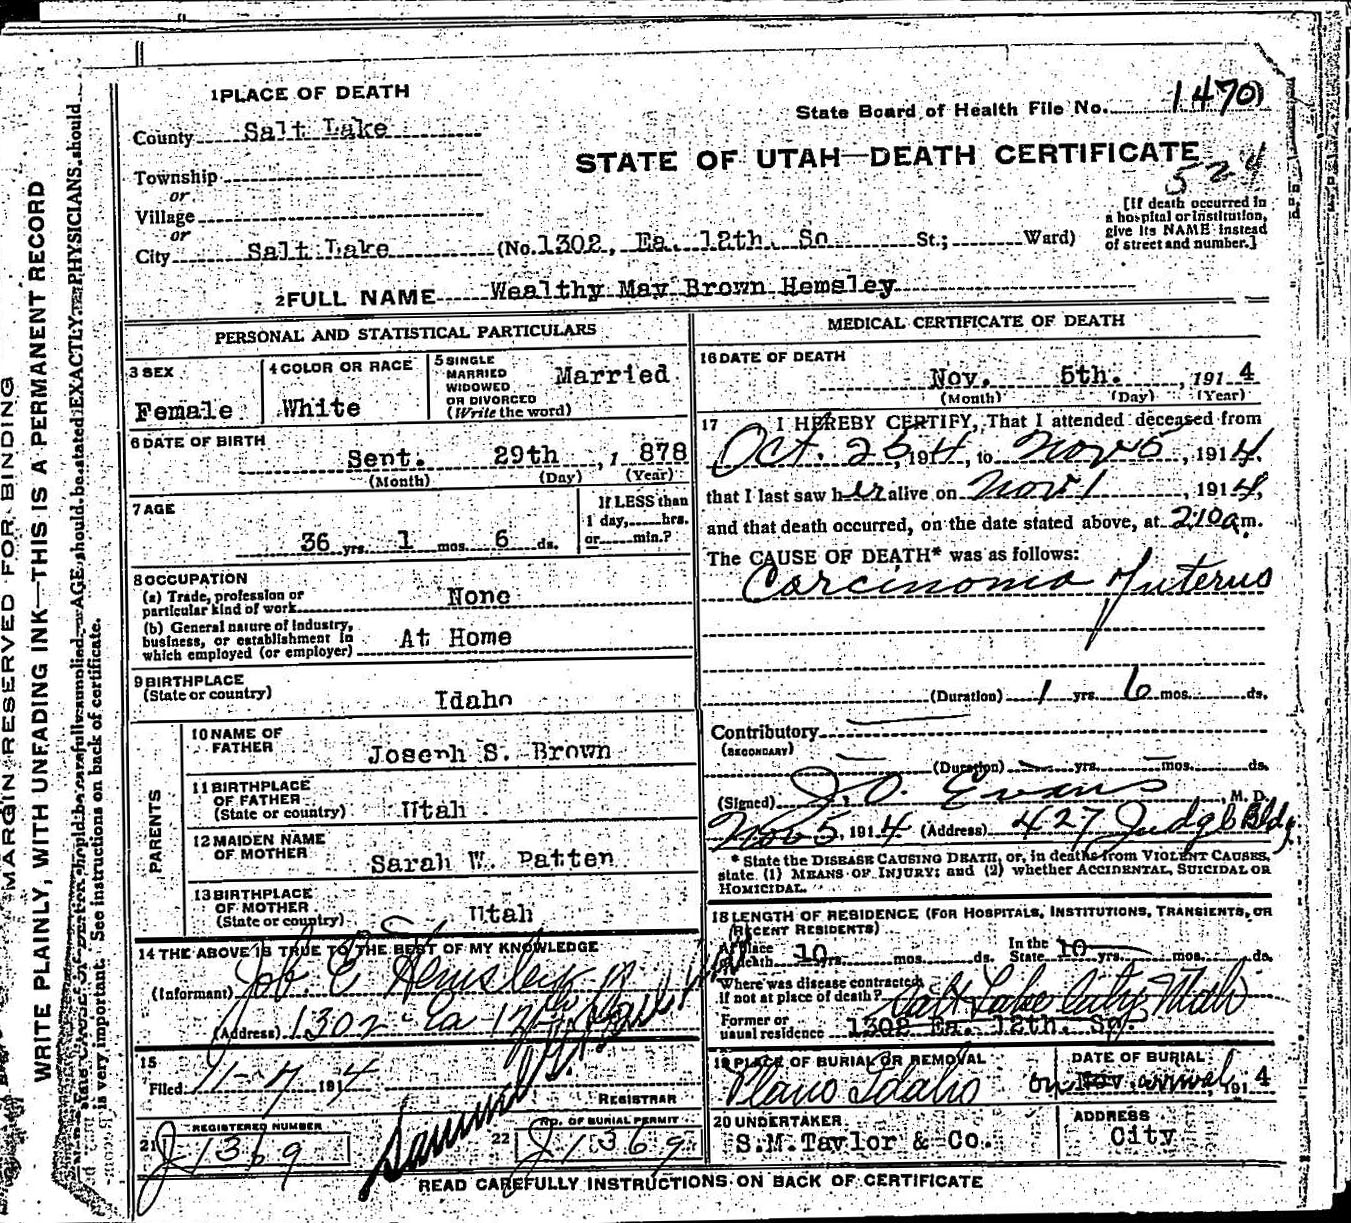 MARGIN RESERVED FOR BINDING
WRITE PLAINLY, WITH UNFADING INK—THIS IS A PERMANENT RECORD
AGE should be stated EXACTLY. PHYSICIANS should
is very important. See instructions on back of certificate.
1 PLACE OF DEATH
State Board of Health File No. 1470
County Salt Lake
STATE OF UTAH—DEATH CERTIFICATE
Township
or
Village
or
City Salt Lake (No. 1302, Ea. 12th. So St.; Ward)
[If death occurred in
a hospital or institution,
give its NAME instead
of street and number.]
2 FULL NAME Wealthy May Brown Hemsley
PERSONAL AND STATISTICAL PARTICULARS
3 SEX
Female
4 COLOR OR RACE
White
5 SINGLE
MARRIED
WIDOWED
OR DIVORCED
(Write the word)
Married
6 DATE OF BIRTH
Sept. 29th , 1 878
(Month) (Day) (Year)
7 AGE
36 yrs. 1 mos. 6 ds.
If LESS than
1 day, hrs.
or min.?
8 OCCUPATION
(a) Trade, profession or
particular kind of work None
(b) General nature of Industry,
business, or establishment in
which employed (or employer) At Home
9 BIRTHPLACE
(State or country) Idaho
PARENTS
10 NAME OF
FATHER Joseph S. Brown
11 BIRTHPLACE
OF FATHER
(State or country) Utah
12 MAIDEN NAME
OF MOTHER Sarah W. Patten
13 BIRTHPLACE
OF MOTHER
(State or country) Utah
14 THE ABOVE IS TRUE TO THE BEST OF MY KNOWLEDGE
(Informant) Jos. E Hemsley
(Address) 1302 Ea 12th So
15
Filed 11-7 1914
REGISTRAR
REGISTERED NUMBER
21 J1369
NO. OF BURIAL PERMIT
22 J1369
MEDICAL CERTIFICATE OF DEATH
16 DATE OF DEATH
Nov. 5th. , 191 4
(Month) (Day) (Year)
17 I HEREBY CERTIFY, That I attended deceased from
Oct. 25, 1914, to Nov 5, 1914.
that I last saw her alive on Nov 1, 1914,
and that death occurred, on the date stated above, at 210 a m.
The CAUSE OF DEATH* was as follows:
Carcinoma of uterus
(Duration) 1 yrs. 6 mos. ds.
Contributory
(SECONDARY)
(Duration) yrs. mos. ds.
(Signed) J. O. Evans M. D.
Nov 5, 1914 (Address) 427 Judge Bldg.
* State the DISEASE CAUSING DEATH, or, in deaths from VIOLENT CAUSES,
state (1) MEANS OF INJURY; and (2) whether ACCIDENTAL, SUICIDAL OR
HOMICIDAL.
18 LENGTH OF RESIDENCE (FOR HOSPITALS, INSTITUTIONS, TRANSIENTS, OR
RECENT RESIDENTS)
At place
of death 10 yrs. mos. ds.
In the
State 10 yrs. mos. ds.
Where was disease contracted,
if not at place of death? Salt Lake City Utah
Former or
usual residence 1302 Ea. 12th. So.
19 PLACE OF BURIAL OR REMOVAL
Plano Idaho
DATE OF BURIAL
on Nov. arrival, 191 4
20 UNDERTAKER
S.M. Taylor & Co.
ADDRESS
City
READ CAREFULLY INSTRUCTIONS ON BACK OF CERTIFICATE